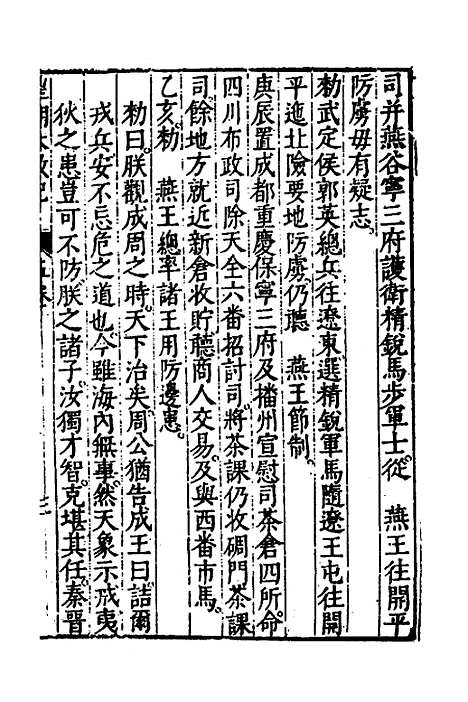 司并燕谷寧三府護衛精銳馬步軍士從　燕王往開平
防虜毋有疑志
勑武定侯郭英總兵往遼東選精銳軍馬隨遼王屯往開
平迤北險要地防虜仍聽　燕王節制
庚辰置成都重慶保寧三府及播州宣慰司茶倉四所命
四川布政司除天全六番招討司將茶課仍收碉門茶課
司餘地方就近新倉收貯聽商人交易及與西番市馬
乙亥勑　燕王總率諸王用防邊患
勑曰朕觀成周之時天下治矣周公猶告成王曰詰爾
戎兵安不忘危之道也今雖海內無事然天象示戒夷
狄之患豈可不防朕之諸子汝獨才智克堪其任秦晉
皇明大政紀　五卷